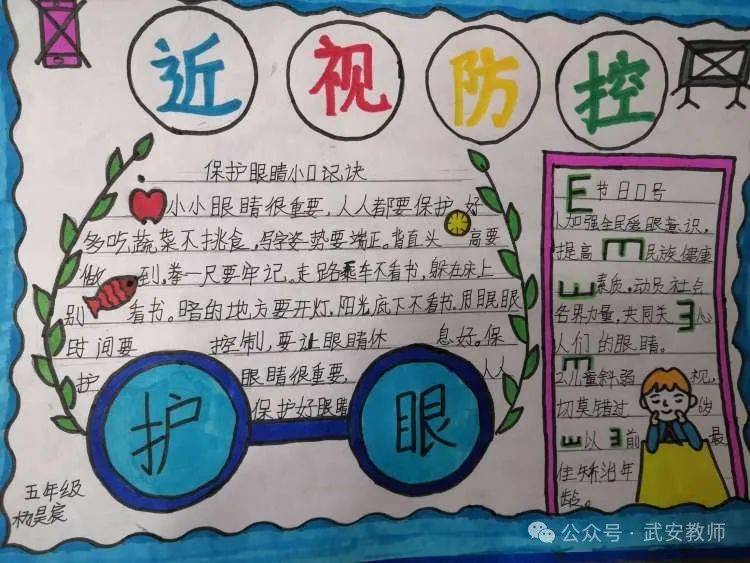 近视防控
保护眼睛小口诀
小小眼睛很重要,人人都要保护好
多吃蔬菜不挑食,写字姿势要端正。背直头高要
做到,拳一尺要牢记。走路乘车不看书,躲在床上
别看书。暗的地方要开灯,阳光底下不看书.用眼
时间要控制,要让眼睛休息好,保
护眼睛很重要,人人
保护好眼睛
护眼
五年级
节日口号
1.加强全民爱眼意识,
提高民族健康
素质,动员社会
各界力量,共同关心
人们的眼睛。
2.儿童斜弱视,
切莫错过6岁
以前最
佳矫治年
龄。
公众号·武安教师